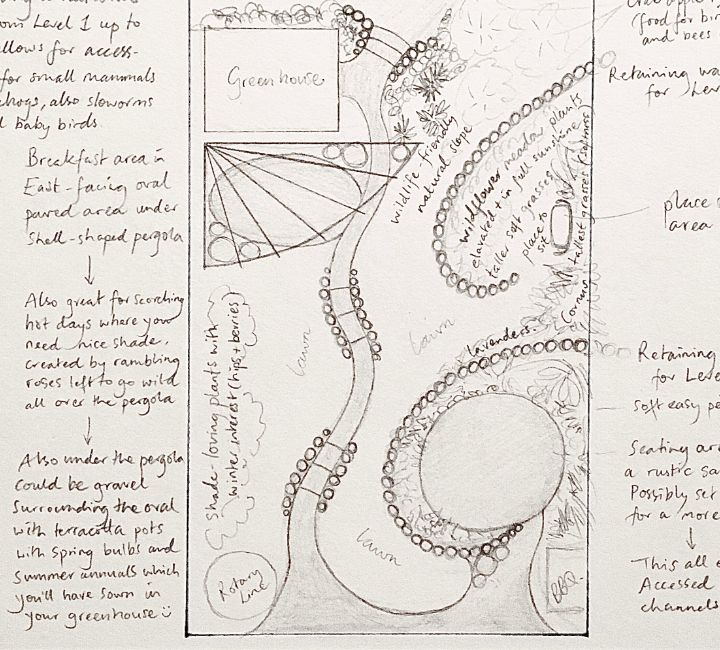 om Level 1 up to
llows for access-
for small mammals
chogs, also sloworms
d baby birds.
Breakfast area in
East-facing oval
paved area under
Shell-shaped pergola
Also great for scorching
hot days where you
need nice shade,
created by rambling
roses left to go wild
all over the pergola
Also under the pergola
could be gravel
surrounding the oval
with terracotta pots
with spring bulbs and
summer annuals which
you'll have sown in
your greenhouse
Greenhouse
wildlife friendly
natural slope
wildflower meadow plants
elavated + in full sunshine
taller soft grasses
place to
sit
tallest grasses
lawn
lawn
lavenders.
Shade-loving plants with
winter interest (hips + berries)
lawn
Rotary
Line
BBQ
(food for bir
and bees
Retaining wa
for Lev
place s
area
Retaining
for Leve
soft easy pe
Seating are
a rustic sa
Possibly set
for a more
This all
Accessed
channels